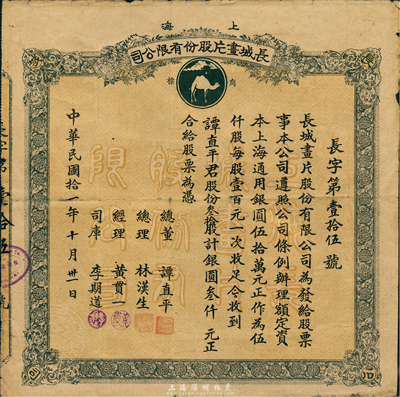 上海
長城畫片股份有限公司
商標
長字第壹拾伍號
長城畫片股份有限公司為發給股票
事本公司遵照公司條例辦理額定資
本上海通用銀圓伍拾萬元正作為伍
仟股每股壹百元一次收足今收到
譚直平君股份叁拾股計銀圓叁仟元正
合給股票為憑
總董 譚直平
總理 林漢生
經理 黃貫一
司庫 李期道
中華民國拾一年十月卅一日